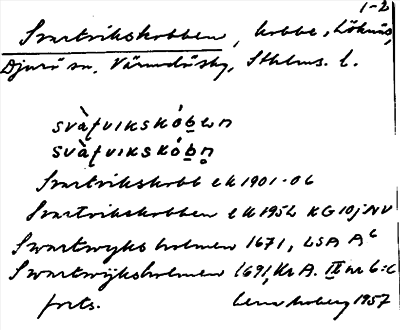 1-2
Svartvikskobben, kobbe, Löknäs,
Djurö sn, Värmdöshg, Sthlms. l.
svàʈvikskób̥ən
svàʈvikskóbn̥
Svartvikskobb ek 1901-06
Svartvikskobben ek 1952 KG 10j NV
Swartwyks holmen 1671, LSA A6
Swartwijksholmen 1691, Kr A. IX nr 6:c
forts. Moberg 1957